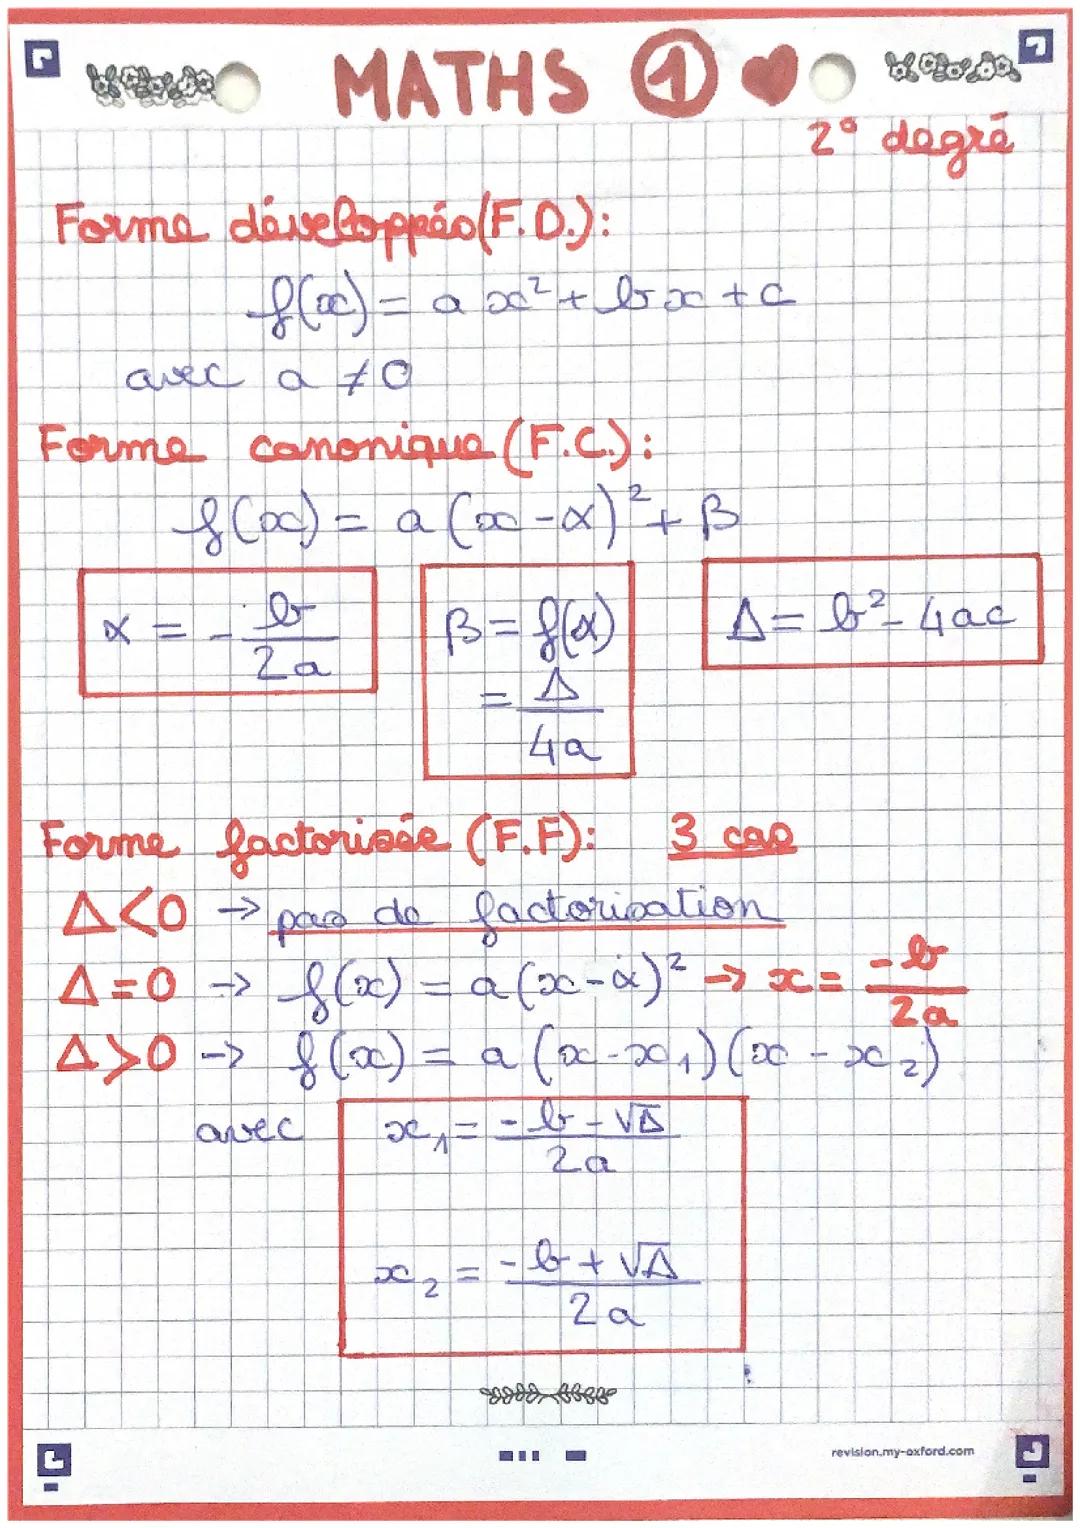 MATHS ① ♥
2° degré
Forme développée (F.D.):
f(x) = a x² + bx + c
avec a ≠ 0
Forme canonique (F.C.):
f(x) = a (x - α)² + β
α = - b/2a
β = f(α)
= Δ/4a
Δ = b² - 4ac
Forme factorisée (F.F): 3 cas
Δ<0 → pas de factorisation
Δ=0 → f(x) = a(x-α)² → x = -b/2a
Δ>0 → f(x) = a (x-x₁)(x - x₂)
avec x₁ = -b-√Δ/2a
x₂ = -b+√Δ/2a
revision.my-oxford.com